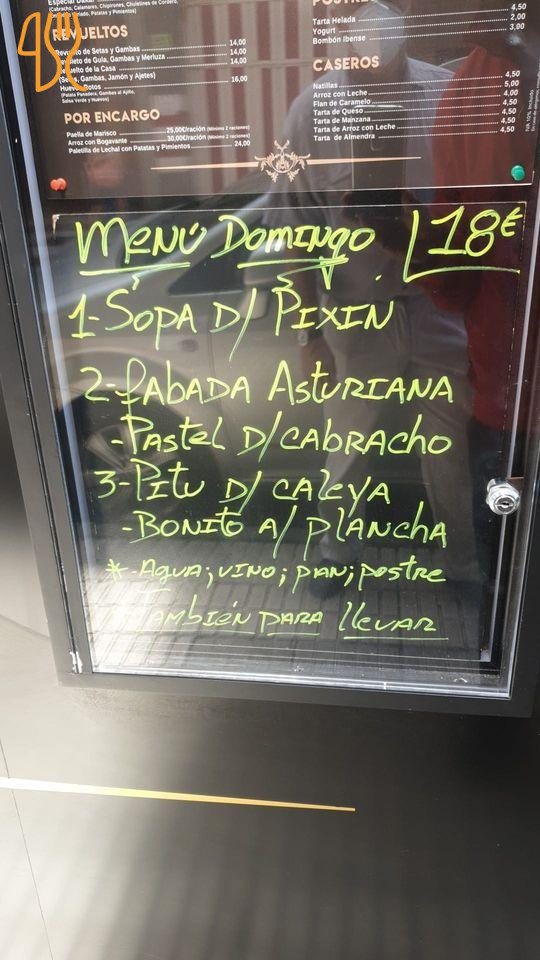 (Cabracho, Calamares, Chipirones, Chuletines de Cordero,
Patatas y Pimientos)
REVUELTOS
Revuelto de Setas y Gambas 14,00
de Gula, Gambas y Merluza 14,00
Revuelto de la Casa 14,00
(Setas, Gambas, Jamón y Ajetes)
Huevos Rotos 16,00
(Patata Panadera, Gambas al Ajillo,
Salsa Verde y Huevos)
POR ENCARGO
Paella de Marisco 25,00€/ración (Mínimo 2 raciones)
Arroz con Bogavante 30,00€/ración (Mínimo 2 raciones)
Paletilla de Lechal con Patatas y Pimientos 24,00
POSTRES
4,50
Tarta Helada 2,00
Yogurt 3,00
Bombón Ibense
CASEROS
Natillas 4,50
Arroz con Leche 5,00
Flan de Caramelo 4,00
Tarta de Queso 4,50
Tarta de Manzana 4,50
Tarta de Arroz con Leche 4,50
Tarta de Almendra 4,50
IVA 10% Incluido
Menú Domingo 18€
1-Sopa D/ Pixin
2-fabada Asturiana
-Pastel D/cabracho
3-Pitu D/ caleya
-Bonito a/ plancha
*-Agua; vino; pan; postre
También para llevar